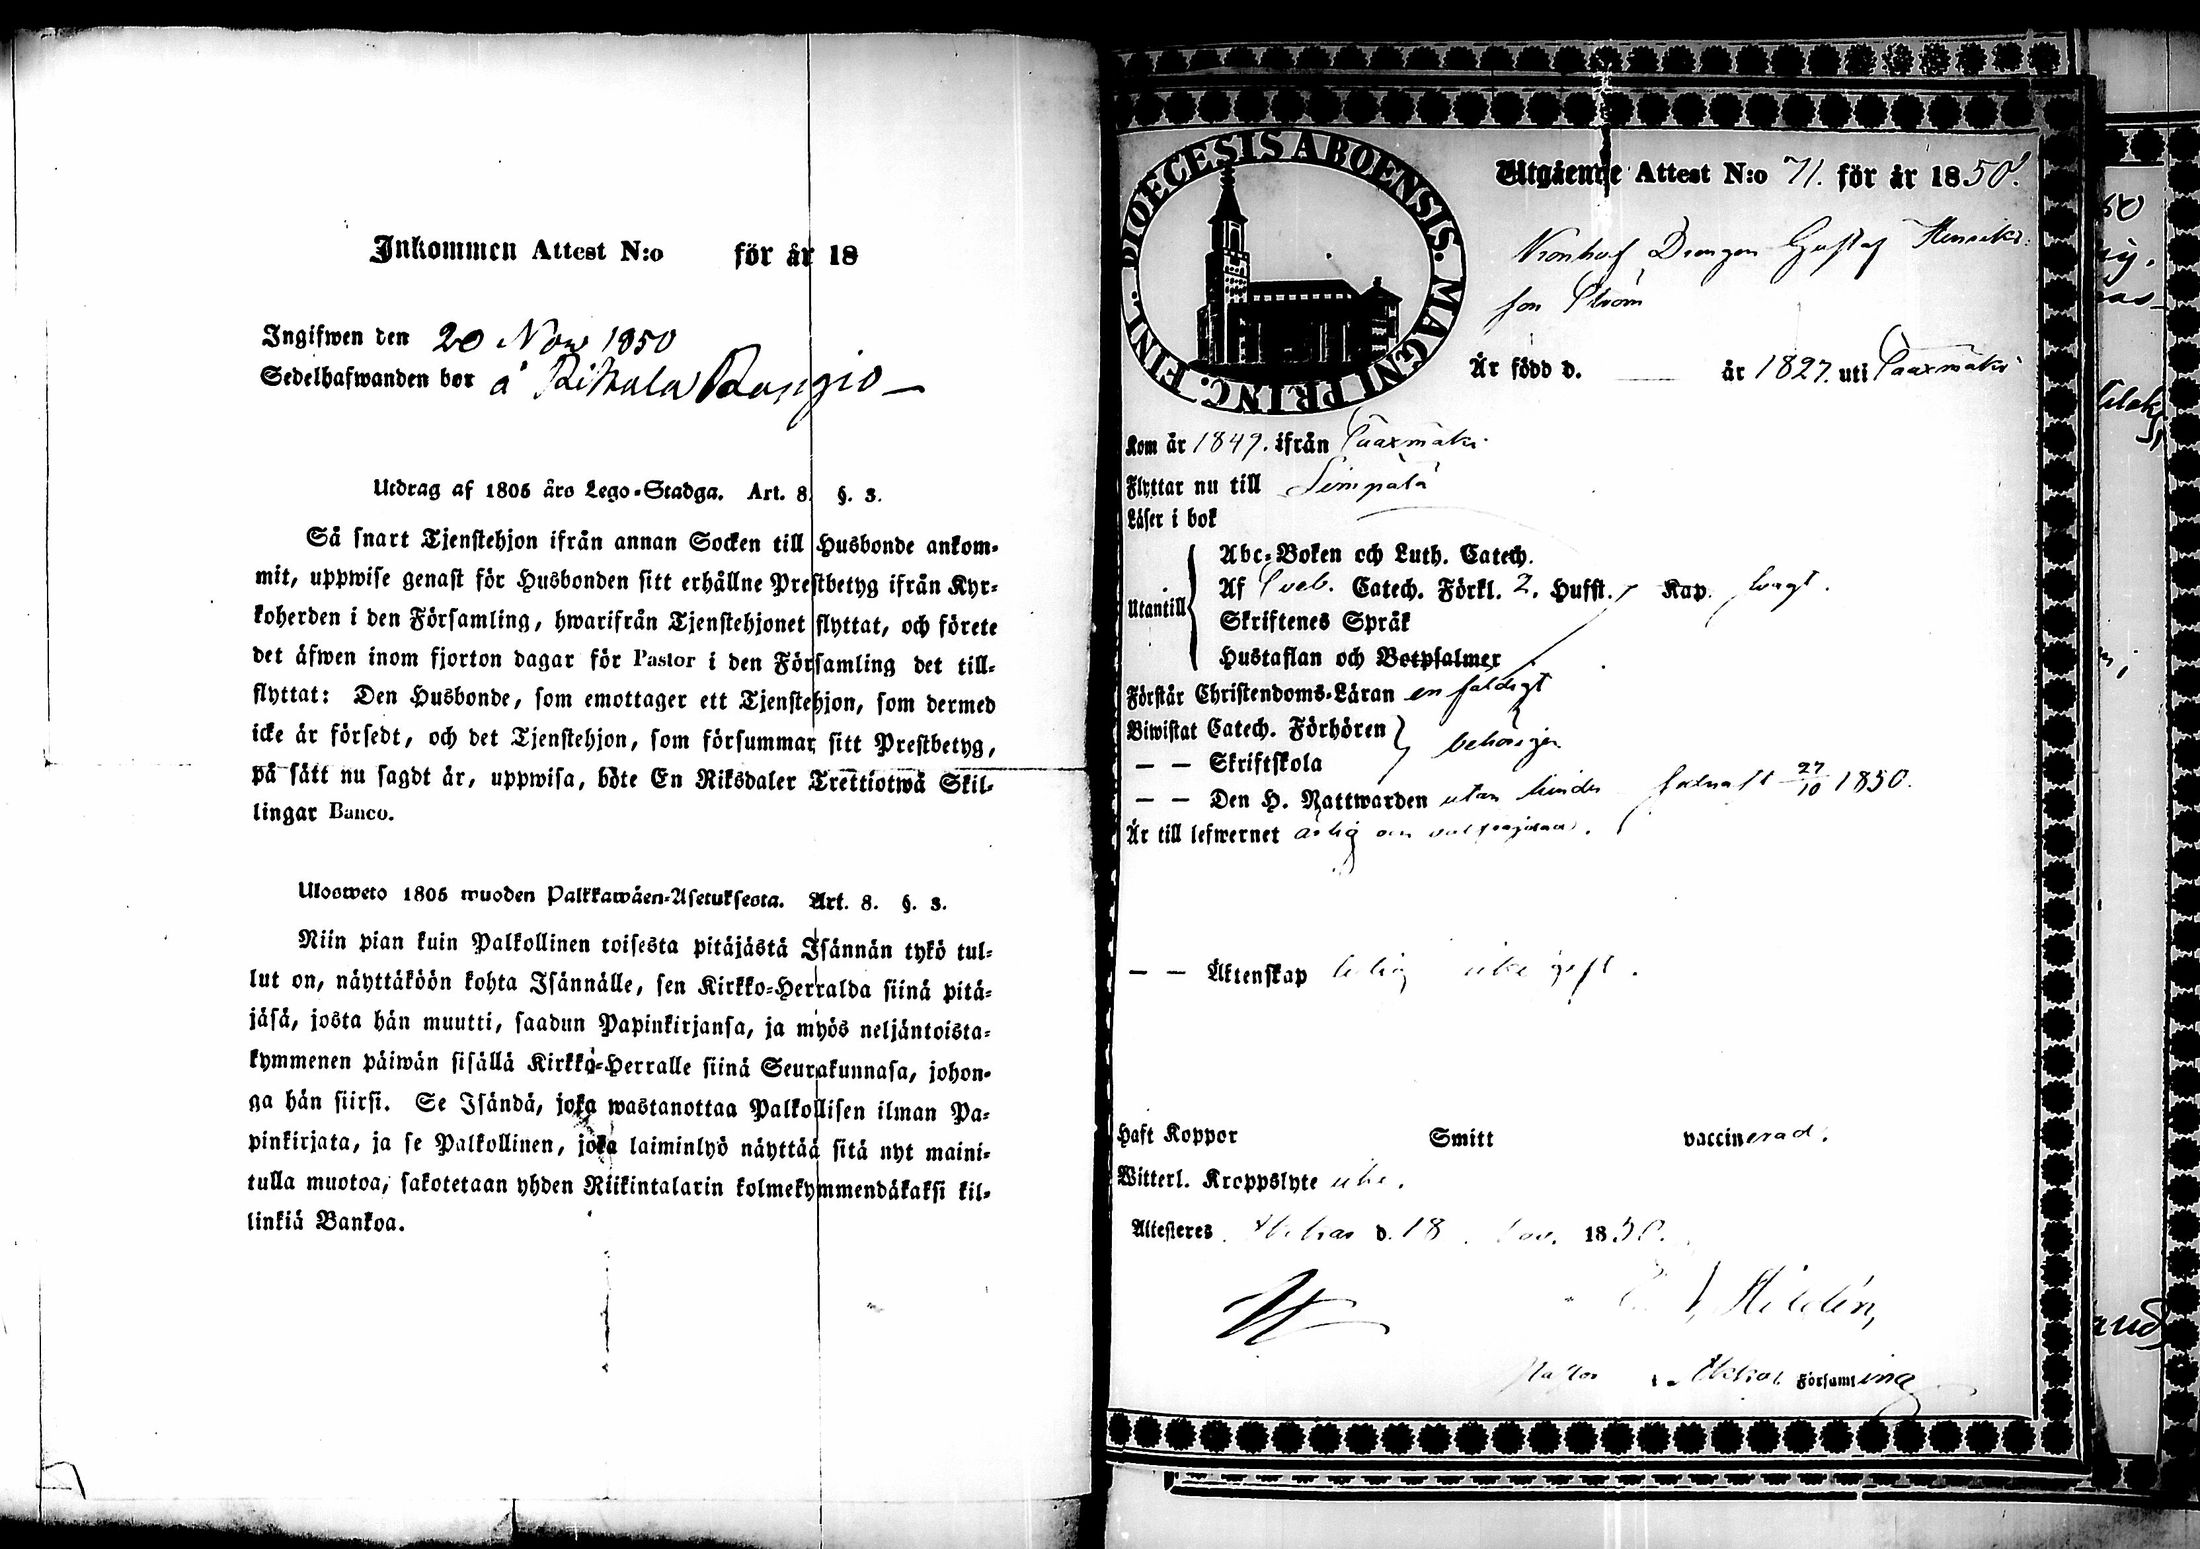 Inkommen Attest N:o för år 18
Ingifwen den 20 Nov 1850
Sedelhafwanden bor å Rikala Rusgio
Utdrag af 1805 års Lego-Stadga. Art. 8. §. 3.
Så snart Tjenstehjon ifrån annan Socken till Husbonde ankom-
mit, uppwise genast för Husbonden sitt erhållne Prestbetyg ifrån Kyr-
koherden i den Församling, hwarifrån Tjenstehjonet flyttat, och förete
det äfwen inom fjorton dagar för Pastor i den Församling det till-
flyttat: Den Husbonde, som emottager ett Tjenstehjon, som dermed
icke är försedt, och det Tjenstehjon, som försummar sitt Prestbetyg,
på sätt nu sagdt är, uppwisa, böte En Riksdaler Trettiotwå Skil-
lingar Banco.
Ulosweto 1805 wuoden Palkkawäen-Asetuksesta. Art. 8. §. 3.
Niin pian kuin Palkollinen toisesta pitäjästä Isännän tykö tul-
lut on, näyttäköön kohta Isännälle, sen Kirkko-Herralda siinä pitä-
jäsä, josta hän muutti, saadun Papinkirjansa, ja myös neljäntoista-
kymmenen päiwän sisällä Kirkko-Herralle siinä Seurakunnasa, johon-
ga hän siirsi. Se Isändä, joka wastanottaa Palkollisen ilman Pa-
pinkirjata, ja se Palkollinen, joka laiminlyö näyttää sitä nyt maini-
tulla muotoa, sakotetaan yhden Riikintalarin kolmekymmendäkaksi kil-
linkiä Bankoa.
DIOECESIS ABOENSIS. MAGNI PRINC. FINL.
Utgående Attest N:o 71. för år 1850.
Drengen Gustaf Henriks
son Ström
Är född d. — år 1827. uti Paaxmäki
Kom år 1849. ifrån Paaxmäki
Flyttar nu till Simpälä
Läser i bok
Utantill
Abc-Boken och Luth. Catech.
Af Sveb. Catech. Förkl. 2. Hufst. Kap. svagt.
Skriftenes Språk
Hustaflan och Botpsalmer
Förstår Christendoms-Läran enfaldigt
Biwistat Catech. Förhören behörigen
— — Skriftskola
— — Den H. Nattwarden utan hinder sednast 27/10 1850.
Är till lefwernet ärlig och
— — Äktenskap ledig icke gift.
Haft Koppor Smitt vaccinerad.
Witterl. Kroppslyte icke.
Attesteres d. 18 Nov. 1850.
Hildén,
Pastor i Församling